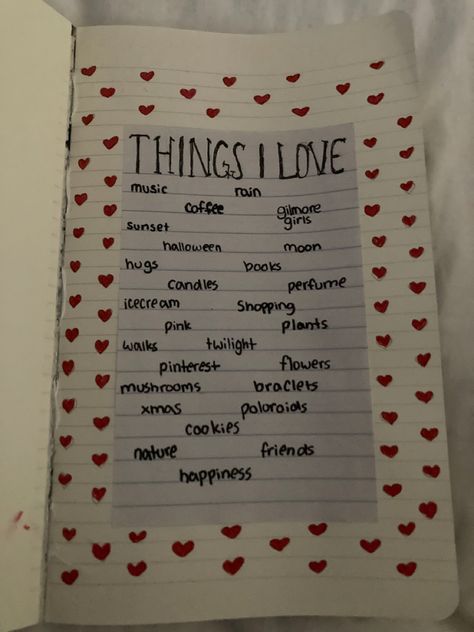 THINGS I LOVE
music rain
coffee gilmore girls
sunset
halloween moon
hugs books
candles perfume
icecream Shopping
pink plants
walks twilight
pinterest flowers
mushrooms braclets
xmas poloroids
cookies
nature friends
happiness